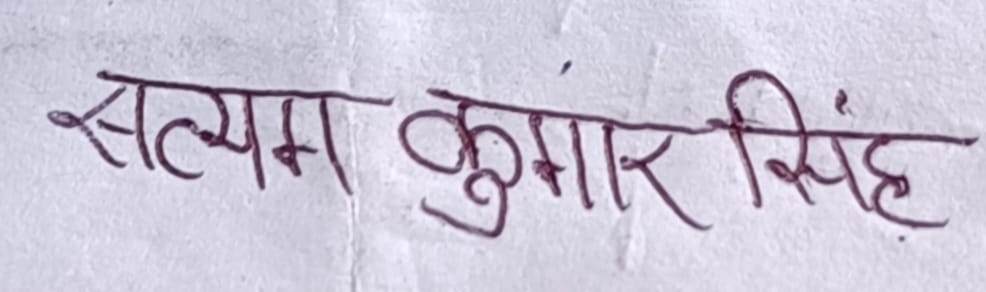 सत्यम कुमार सिंह